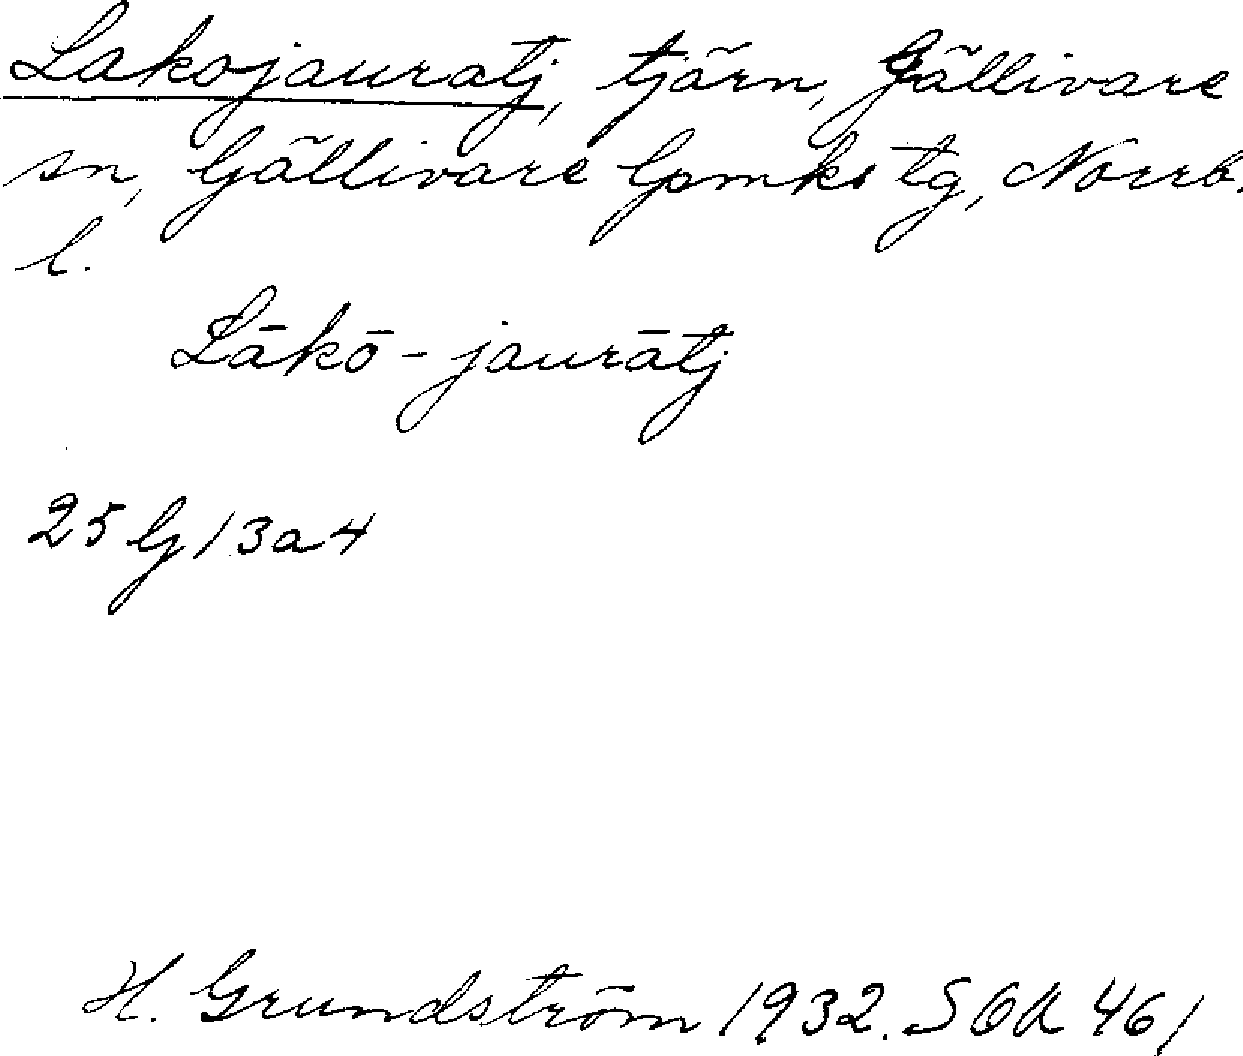 Lakojauratj, tjärn, Gällivare
sn, Gällivare lpmks tg, Norrb.
l.
Lākō-jaurātj
25 G/3a4
H. Grundström 1932. SOA 461